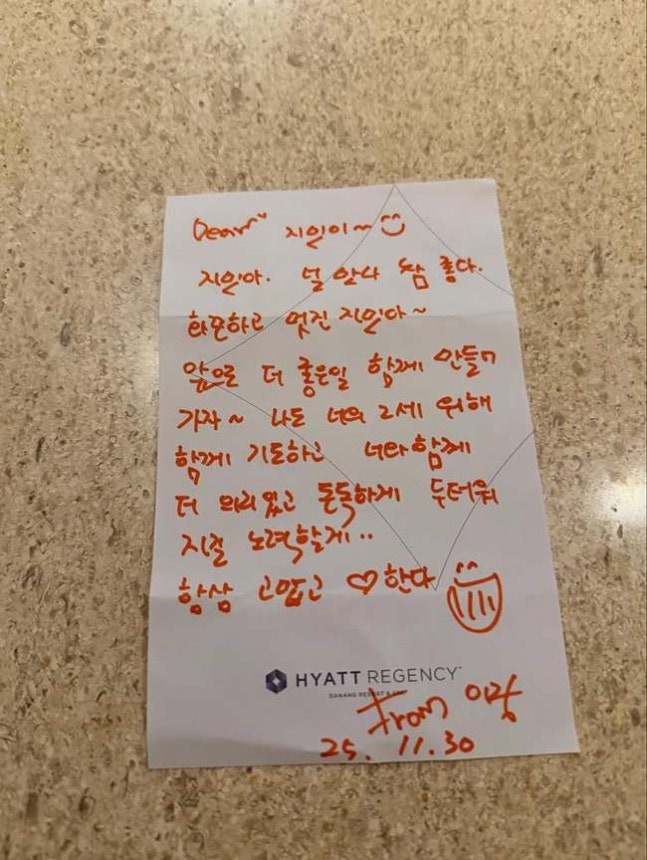 Dear" 지인이~
지인아. 널 안나 참 좋다.
화끈하고 멋진 지인아~
앞으로 더 좋은일 함께 만들어
가자~ 나는 너의 2세 위해
함께 기도하고 너와 함께
더 의리있고 돈독하게 두터워
지길 노력할게..
항상 고맙고 ♡한다
HYATT REGENCY
DANANG RESORT & SPA
From 이랑
25. 11.30